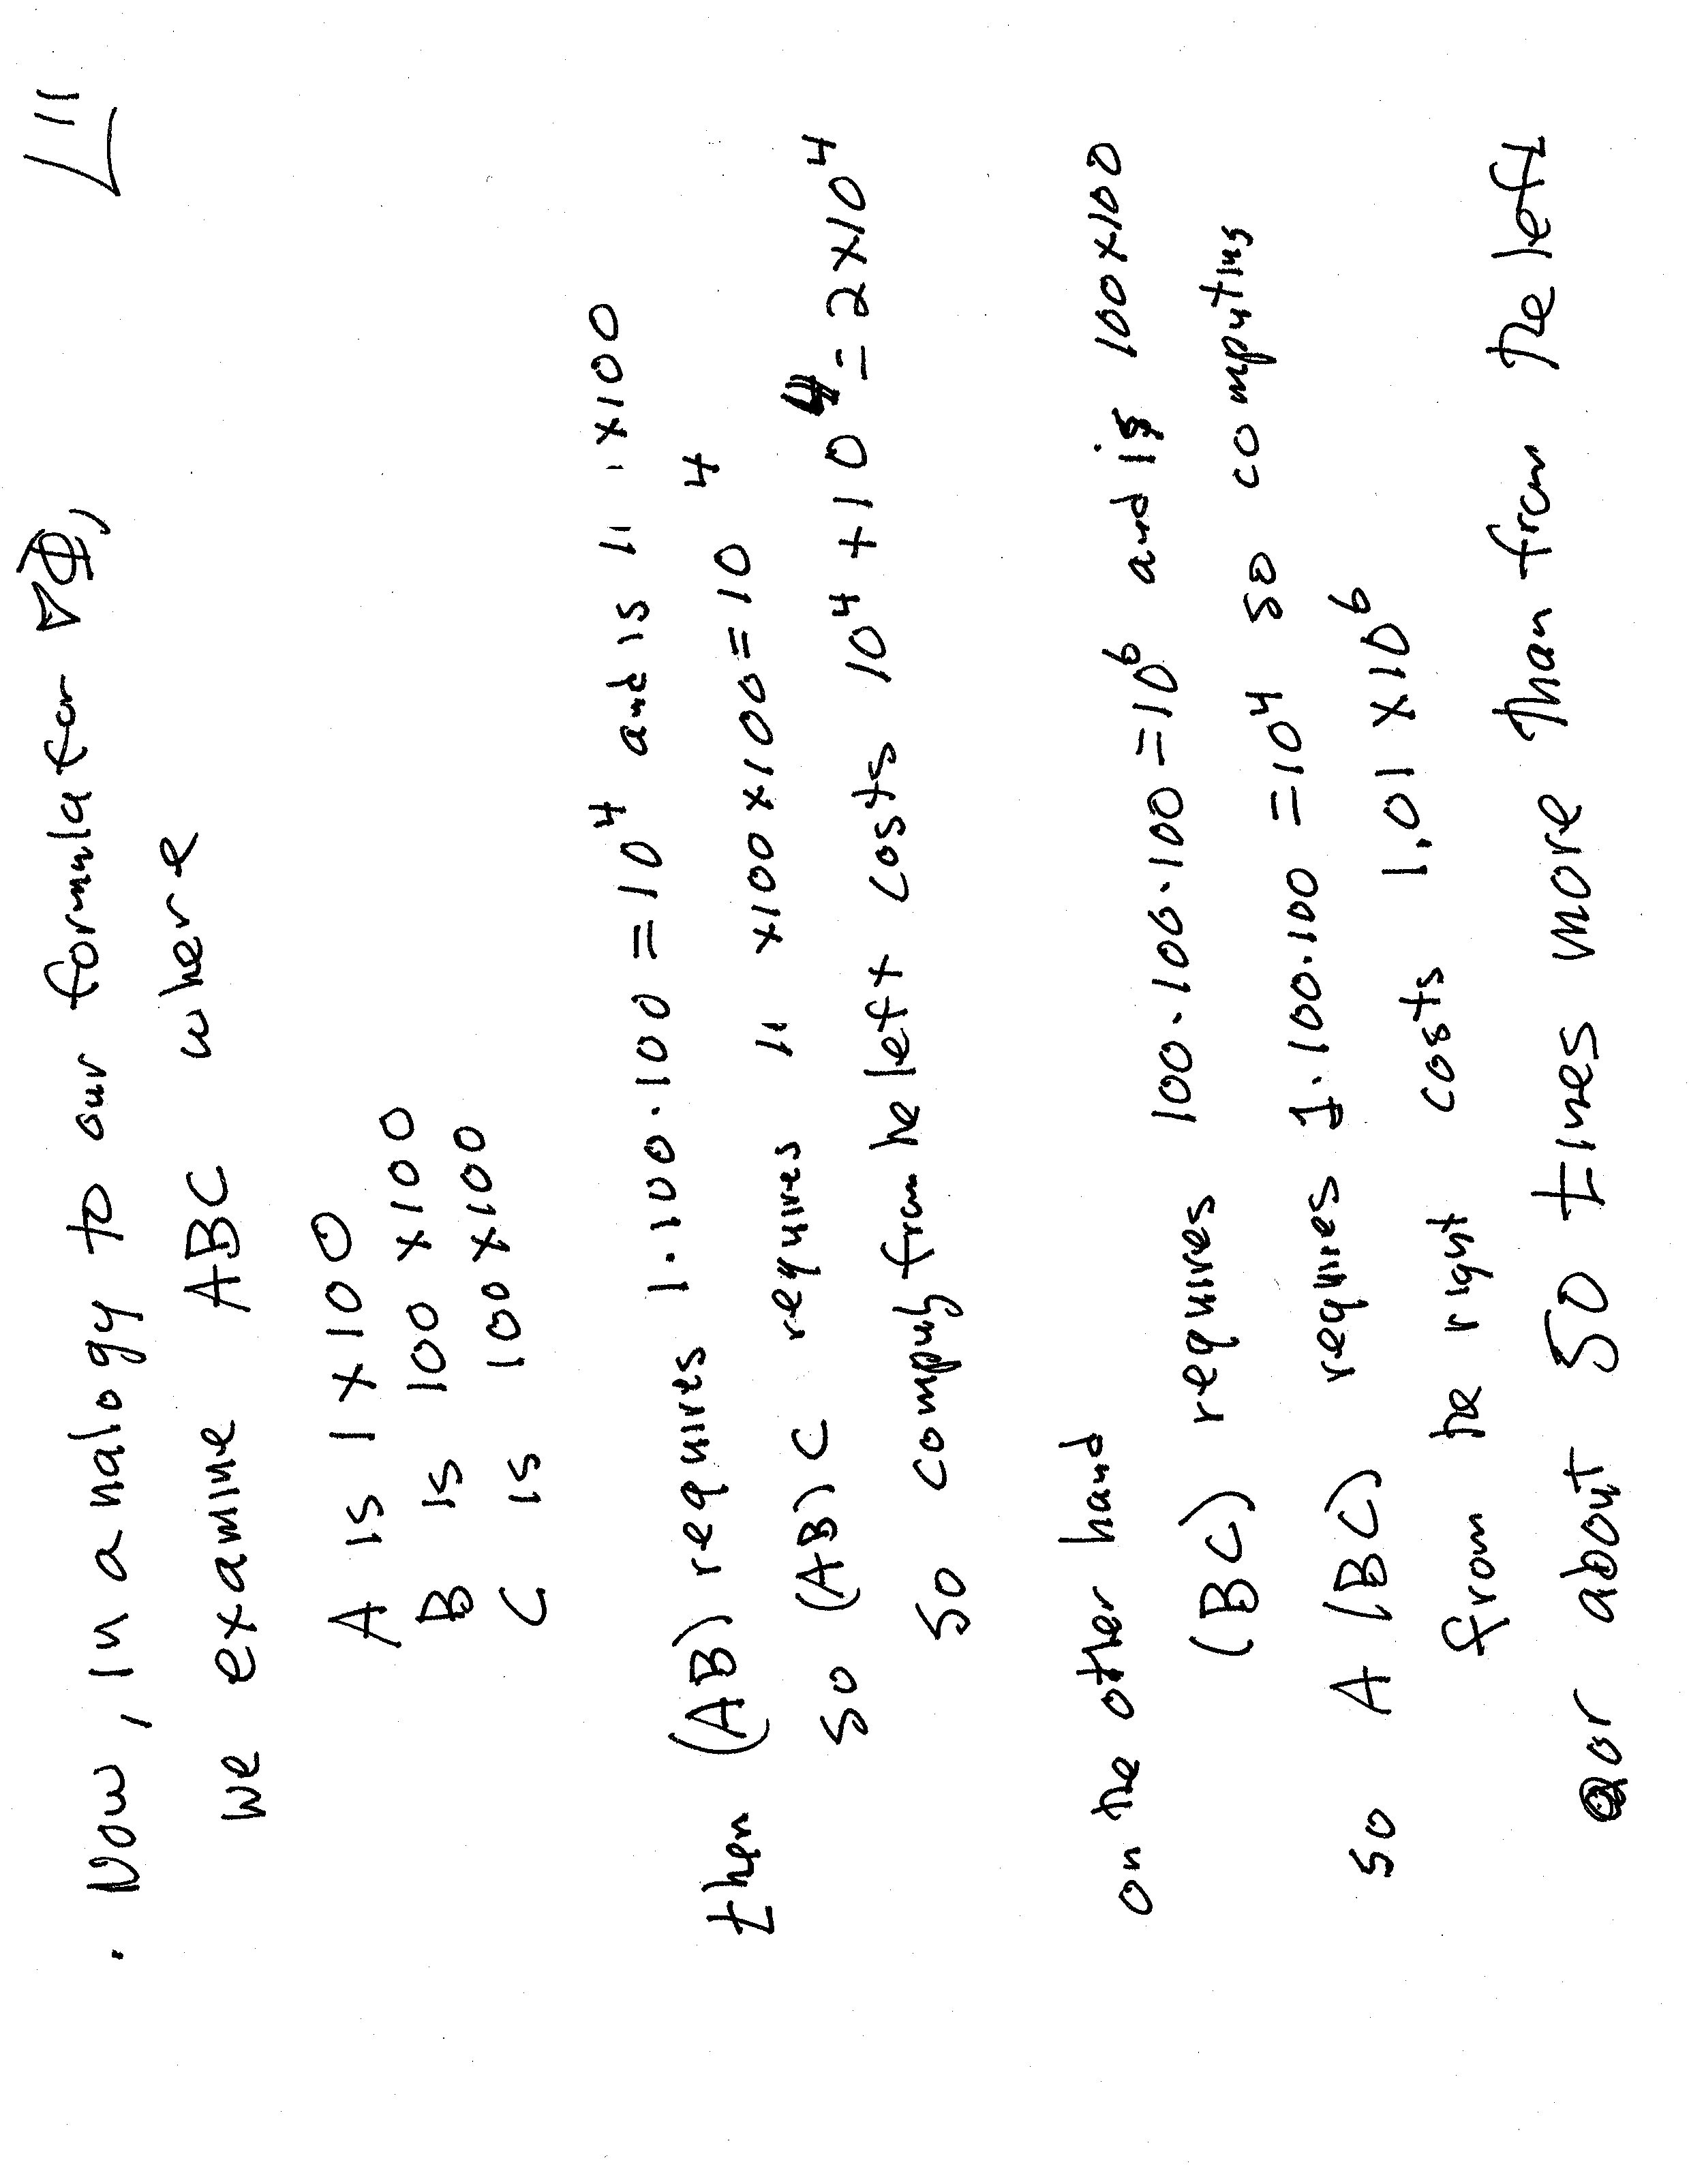 11
. Now, in analogy to our formula for ∇Φ,
we examine ABC where
A is 1 x 100
B is 100 x 100
C is 100 x 100
then (AB) requires 1·100·100 = 10⁴ and is 1 x 100
so (AB) C requires 1 x 100 x 100 = 10⁴
so computing from the left costs 10⁴ + 10⁴ = 2 x 10⁴
on the other hand
(BC) requires 100·100·100 = 10⁶ and is 100 x 100
so A (BC) requires 1·100·100 = 10⁴ so computing
from the right costs 1.01 x 10⁶
or about 50 times more than from the left